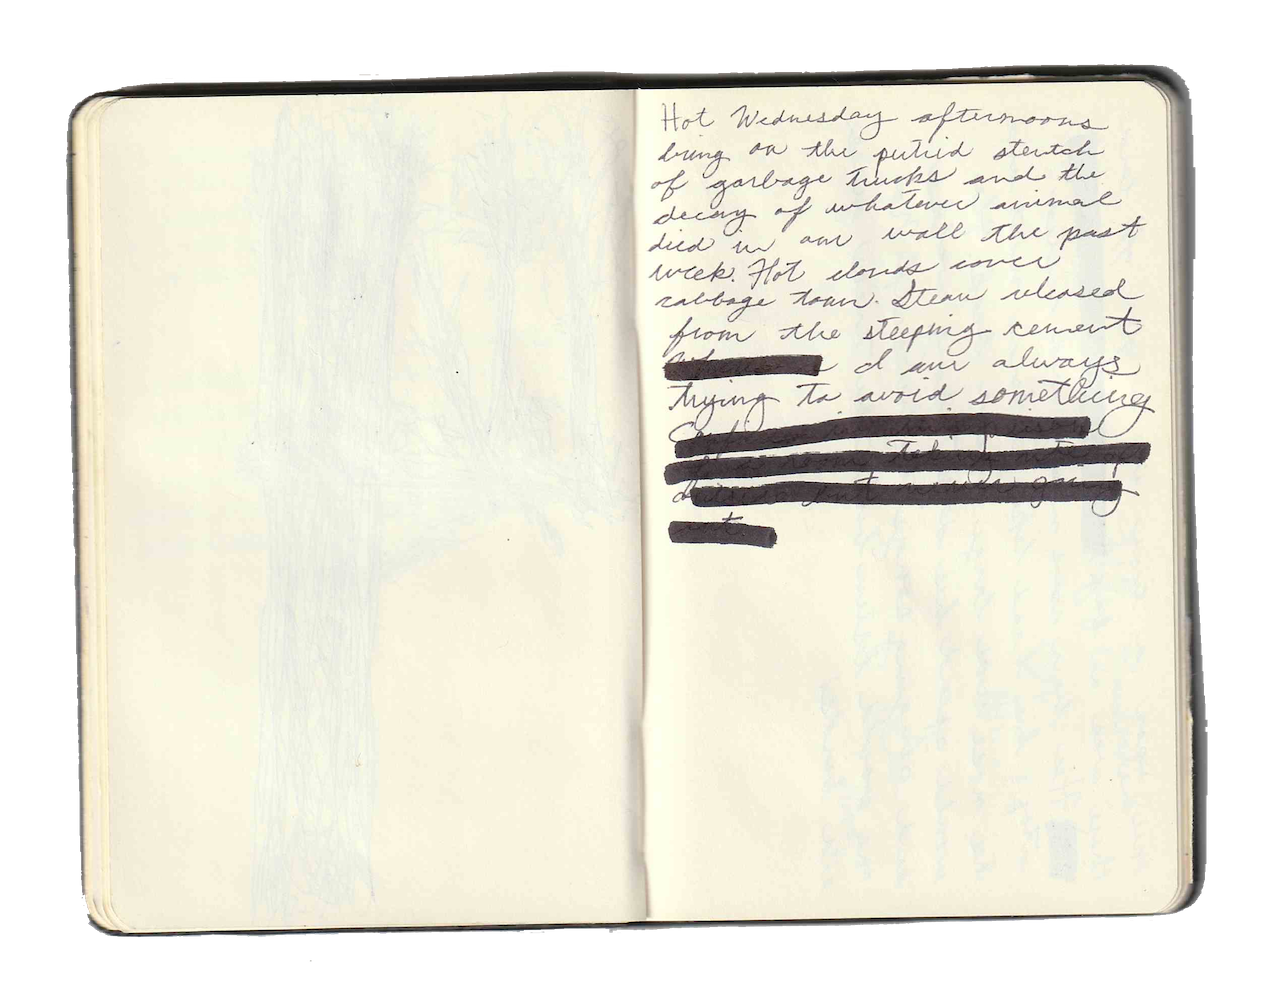 Hot Wednesday afternoons
bring on the putrid stentch
of garbage trucks and the
decay of whatever animal
died in our wall the past
week. Hot clouds cover
cabbage town. Steam released
from the steeping cement
I am always
trying to avoid something